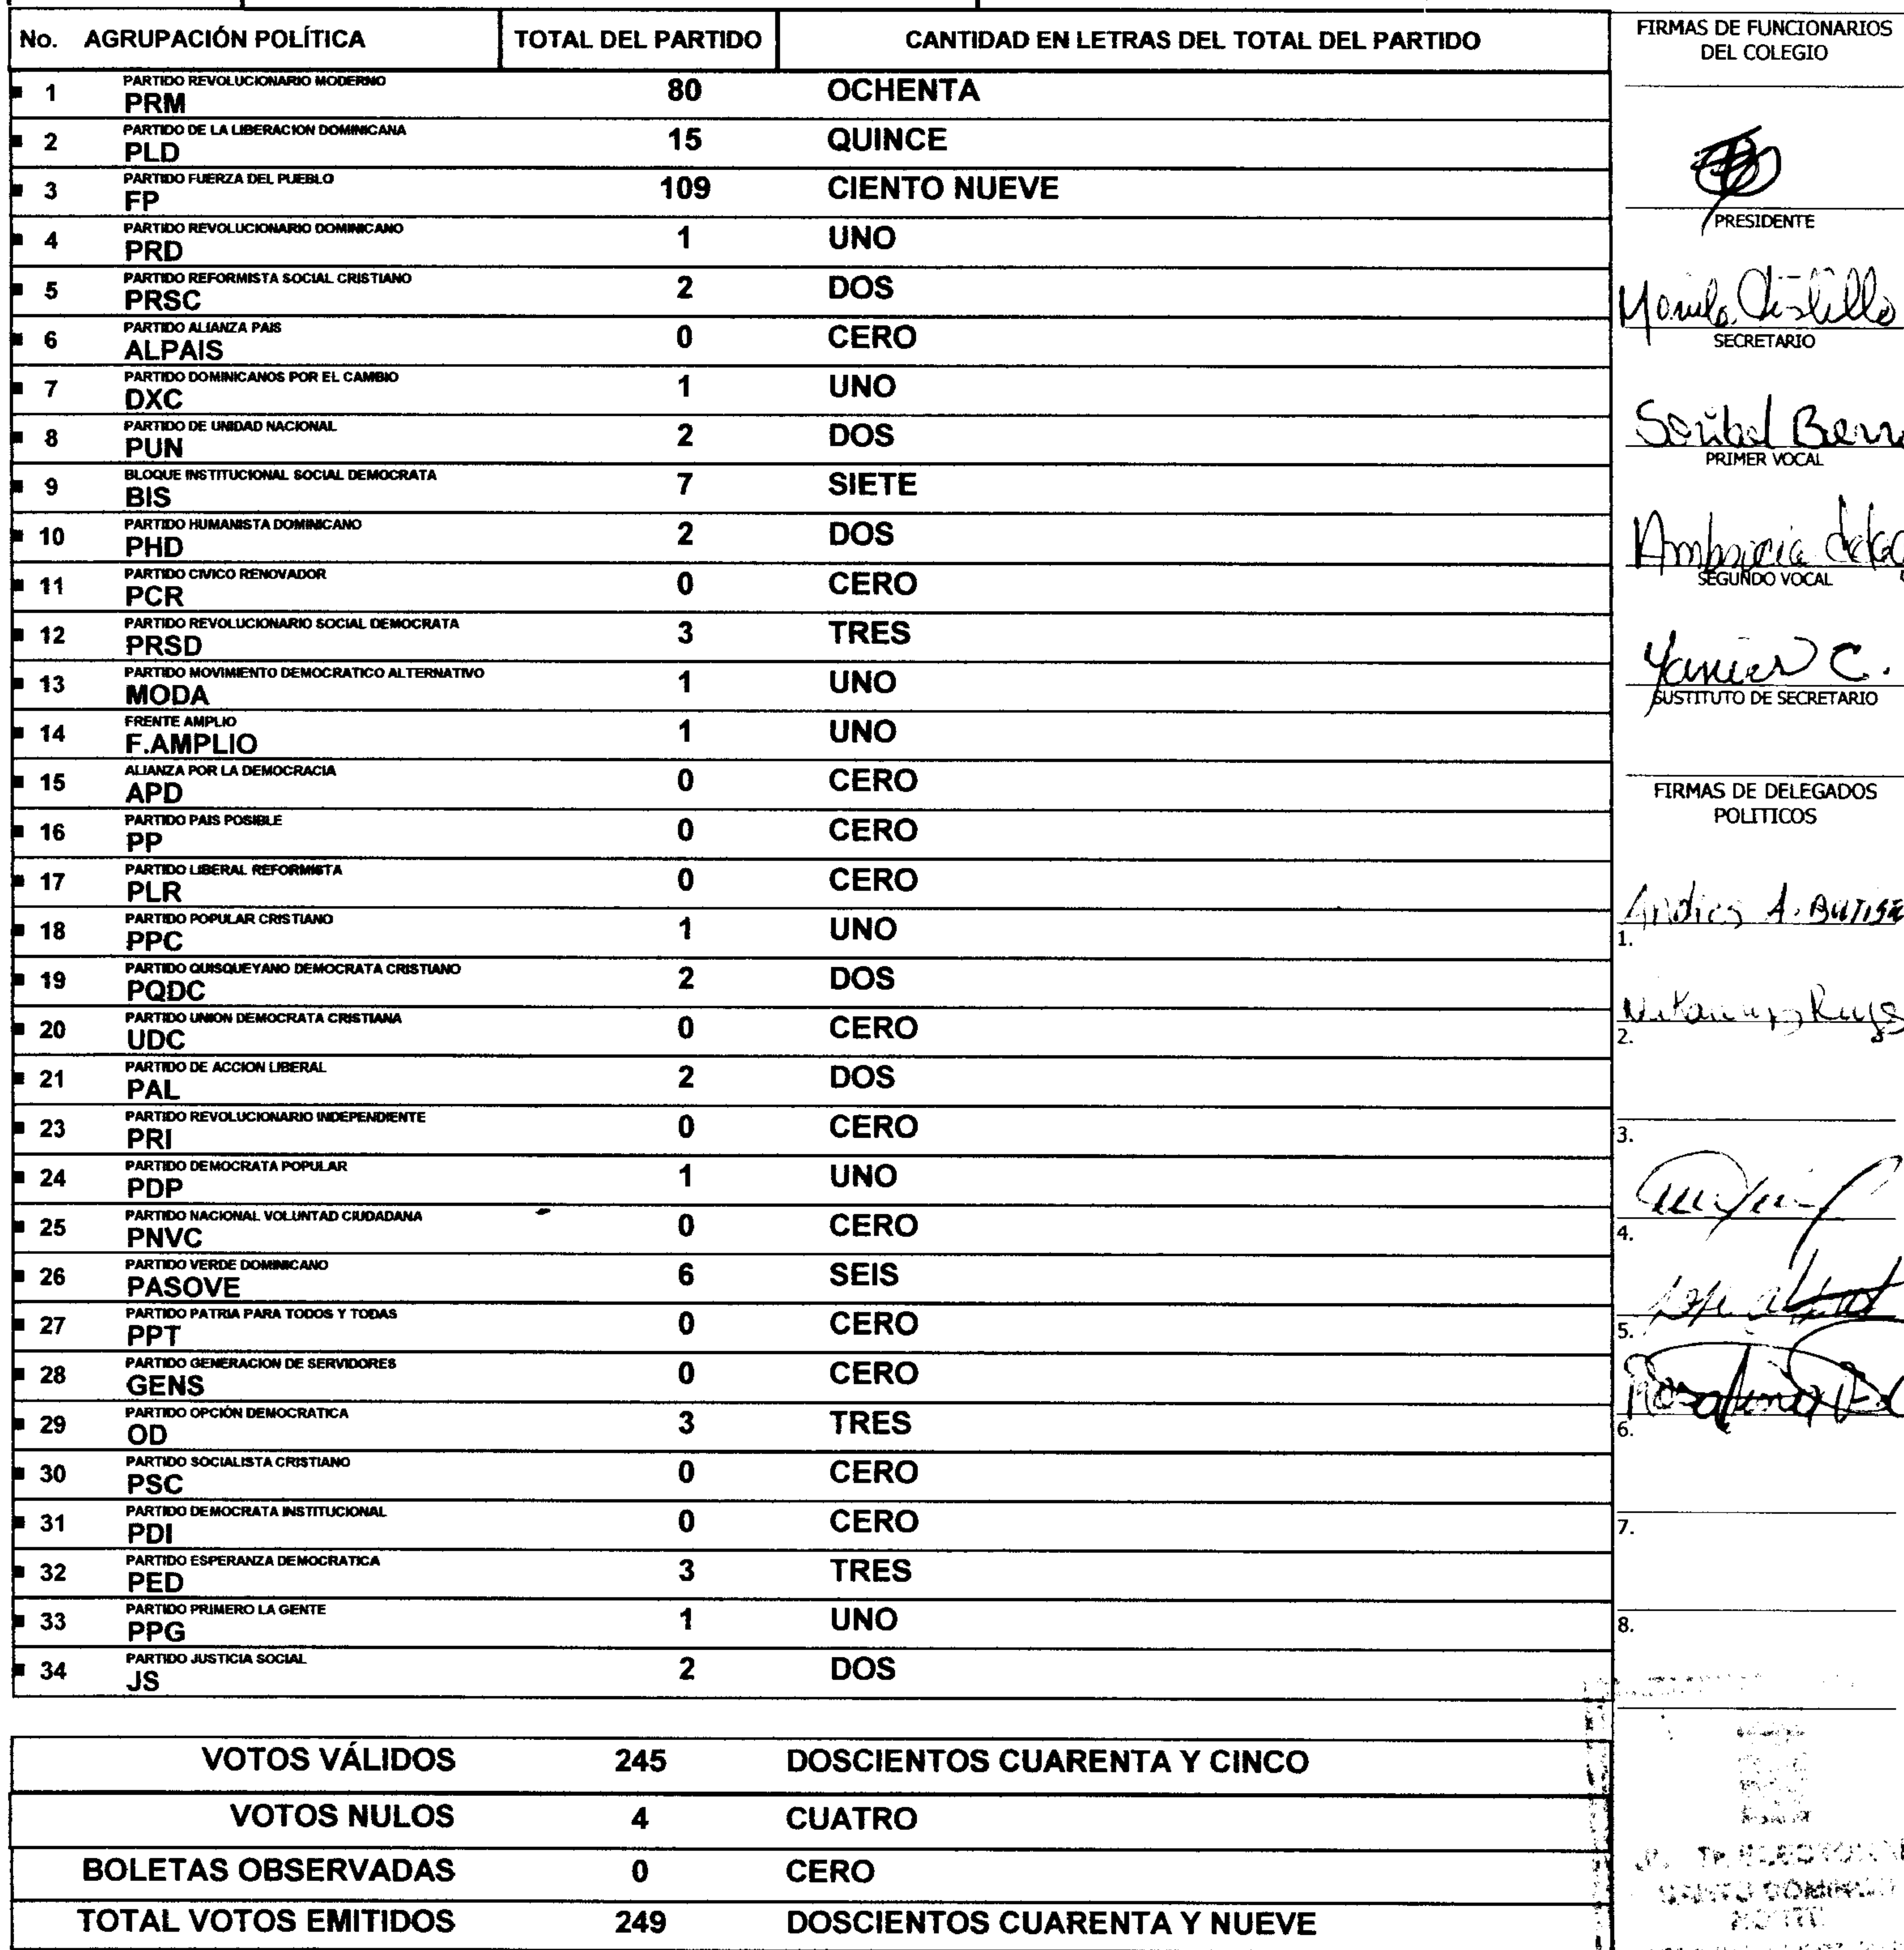 No. AGRUPACIÓN POLÍTICA TOTAL DEL PARTIDO CANTIDAD EN LETRAS DEL TOTAL DEL PARTIDO
PARTIDO REVOLUCIONARIO MODERNO
1 PRM 80 OCHENTA
PARTIDO DE LA LIBERACION DOMINICANA
2 PLD 15 QUINCE
PARTIDO FUERZA DEL PUEBLO
3 FP 109 CIENTO NUEVE
PARTIDO REVOLUCIONARIO DOMINICANO
4 PRD 1 UNO
PARTIDO REFORMISTA SOCIAL CRISTIANO
5 PRSC 2 DOS
PARTIDO ALIANZA PAIS
6 ALPAIS 0 CERO
PARTIDO DOMINICANOS POR EL CAMBIO
7 DXC 1 UNO
PARTIDO DE UNIDAD NACIONAL
8 PUN 2 DOS
BLOQUE INSTITUCIONAL SOCIAL DEMOCRATA
9 BIS 7 SIETE
PARTIDO HUMANISTA DOMINICANO
10 PHD 2 DOS
PARTIDO CIVICO RENOVADOR
11 PCR 0 CERO
PARTIDO REVOLUCIONARIO SOCIAL DEMOCRATA
12 PRSD 3 TRES
PARTIDO MOVIMIENTO DEMOCRATICO ALTERNATIVO
13 MODA 1 UNO
FRENTE AMPLIO
14 F.AMPLIO 1 UNO
ALIANZA POR LA DEMOCRACIA
15 APD 0 CERO
PARTIDO PAIS POSIBLE
16 PP 0 CERO
PARTIDO LIBERAL REFORMISTA
17 PLR 0 CERO
PARTIDO POPULAR CRISTIANO
18 PPC 1 UNO
PARTIDO QUISQUEYANO DEMOCRATA CRISTIANO
19 PQDC 2 DOS
PARTIDO UNION DEMOCRATA CRISTIANA
20 UDC 0 CERO
PARTIDO DE ACCION LIBERAL
21 PAL 2 DOS
PARTIDO REVOLUCIONARIO INDEPENDIENTE
23 PRI 0 CERO
PARTIDO DEMOCRATA POPULAR
24 PDP 1 UNO
PARTIDO NACIONAL VOLUNTAD CIUDADANA
25 PNVC 0 CERO
PARTIDO VERDE DOMINICANO
26 PASOVE 6 SEIS
PARTIDO PATRIA PARA TODOS Y TODAS
27 PPT 0 CERO
PARTIDO GENERACION DE SERVIDORES
28 GENS 0 CERO
PARTIDO OPCIÓN DEMOCRATICA
29 OD 3 TRES
PARTIDO SOCIALISTA CRISTIANO
30 PSC 0 CERO
PARTIDO DEMOCRATA INSTITUCIONAL
31 PDI 0 CERO
PARTIDO ESPERANZA DEMOCRATICA
32 PED 3 TRES
PARTIDO PRIMERO LA GENTE
33 PPG 1 UNO
PARTIDO JUSTICIA SOCIAL
34 JS 2 DOS
VOTOS VÁLIDOS 245 DOSCIENTOS CUARENTA Y CINCO
VOTOS NULOS 4 CUATRO
BOLETAS OBSERVADAS 0 CERO
TOTAL VOTOS EMITIDOS 249 DOSCIENTOS CUARENTA Y NUEVE
FIRMAS DE FUNCIONARIOS
DEL COLEGIO
PRESIDENTE
SECRETARIO
PRIMER VOCAL
SEGUNDO VOCAL
C.
SUSTITUTO DE SECRETARIO
FIRMAS DE DELEGADOS
POLITICOS
A.
1.
2.
3.
4.
5.
6.
7.
8.
SANTO DOMINGO